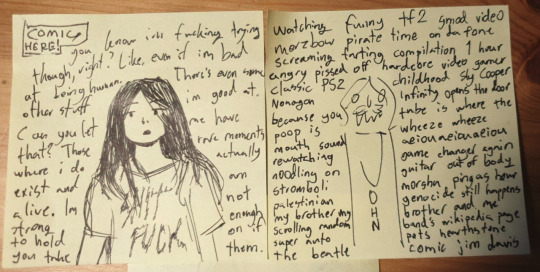 COMIC
HERE!
you know im fucking trying
though, right? Like, even if im bad
at being human. There's even some
other stuff im good at.
Can you let me have
that? Those rare moments
where i do actually
exist and own
a live. Im not
strong enough
to hold on if
you take them.
FUCK
Watching funny tf2 gmod video
merzbow pirate time on da fone
screaming farting compilation 1 hour
angry pissed off hardcore video gamer
classic PS2 childhood Sly Cooper
Nonagon Infinity opens the door
because you tube is where the
poop is wheeze wheeze
mouth sound aeiouaeiouaeiou
rewatching game changer again
noodling on guitar out of body
stromboli pingas how
palestinian genocide still happens
my brother my brother and me
scrolling random band's wikipedia page
super auto pets hearthstone
the beatle comic jim davis
JOHN